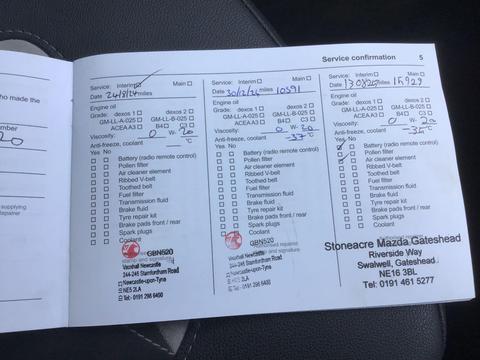 Service confirmation 5
Service: Interim Main
Date 24/8/24 miles
Engine oil
Grade: dexos 1 dexos 2
GM-LL-A-025 GM-LL-B-025
ACEA A3 B4 C3
Viscosity: 0 W- 20
Anti-freeze, coolant °C
Yes No
Battery (radio remote control)
Pollen filter
Air cleaner element
Ribbed V-belt
Toothed belt
Fuel filter
Transmission fluid
Brake fluid
Tyre repair kit
Brake pads front / rear
Spark plugs
Coolant
stamp and signature
GBN520
Vauxhall Newcastle
244-246 Stamfordham Road
Newcastle-upon-Tyne
NE5 2LA
Tel: 0191 286 6400
Service: Interim Main
Date 30/12/24 miles 10591
Engine oil
Grade: dexos 1 dexos 2
GM-LL-A-025 GM-LL-B-025
ACEA A3 B4 C3
Viscosity: 0 W- 20
Anti-freeze, coolant -37 °C
Yes No
Battery (radio remote control)
Pollen filter
Air cleaner element
Ribbed V-belt
Toothed belt
Fuel filter
Transmission fluid
Brake fluid
Tyre repair kit
Brake pads front / rear
Spark plugs
Coolant
GBN520
Vauxhall Newcastle
244-246 Stamfordham Road
Newcastle-upon-Tyne
NE5 2LA
Tel: 0191 286 6400
Service: Interim Main
Date miles 15929
Engine oil
Grade: dexos 1 dexos 2
GM-LL-A-025 GM-LL-B-025
ACEA A3 B4 C3
Viscosity: 0 W- 20
Anti-freeze, coolant -35 °C
Yes No
Battery (radio remote control)
Pollen filter
Air cleaner element
Ribbed V-belt
Toothed belt
Fuel filter
Transmission fluid
Brake fluid
Tyre repair kit
Brake pads front / rear
Spark plugs
Coolant
Stoneacre Mazda Gateshead
Riverside Way
Swalwell, Gateshead
NE16 3BL
Tel: 0191 461 5277
who made the
supplying